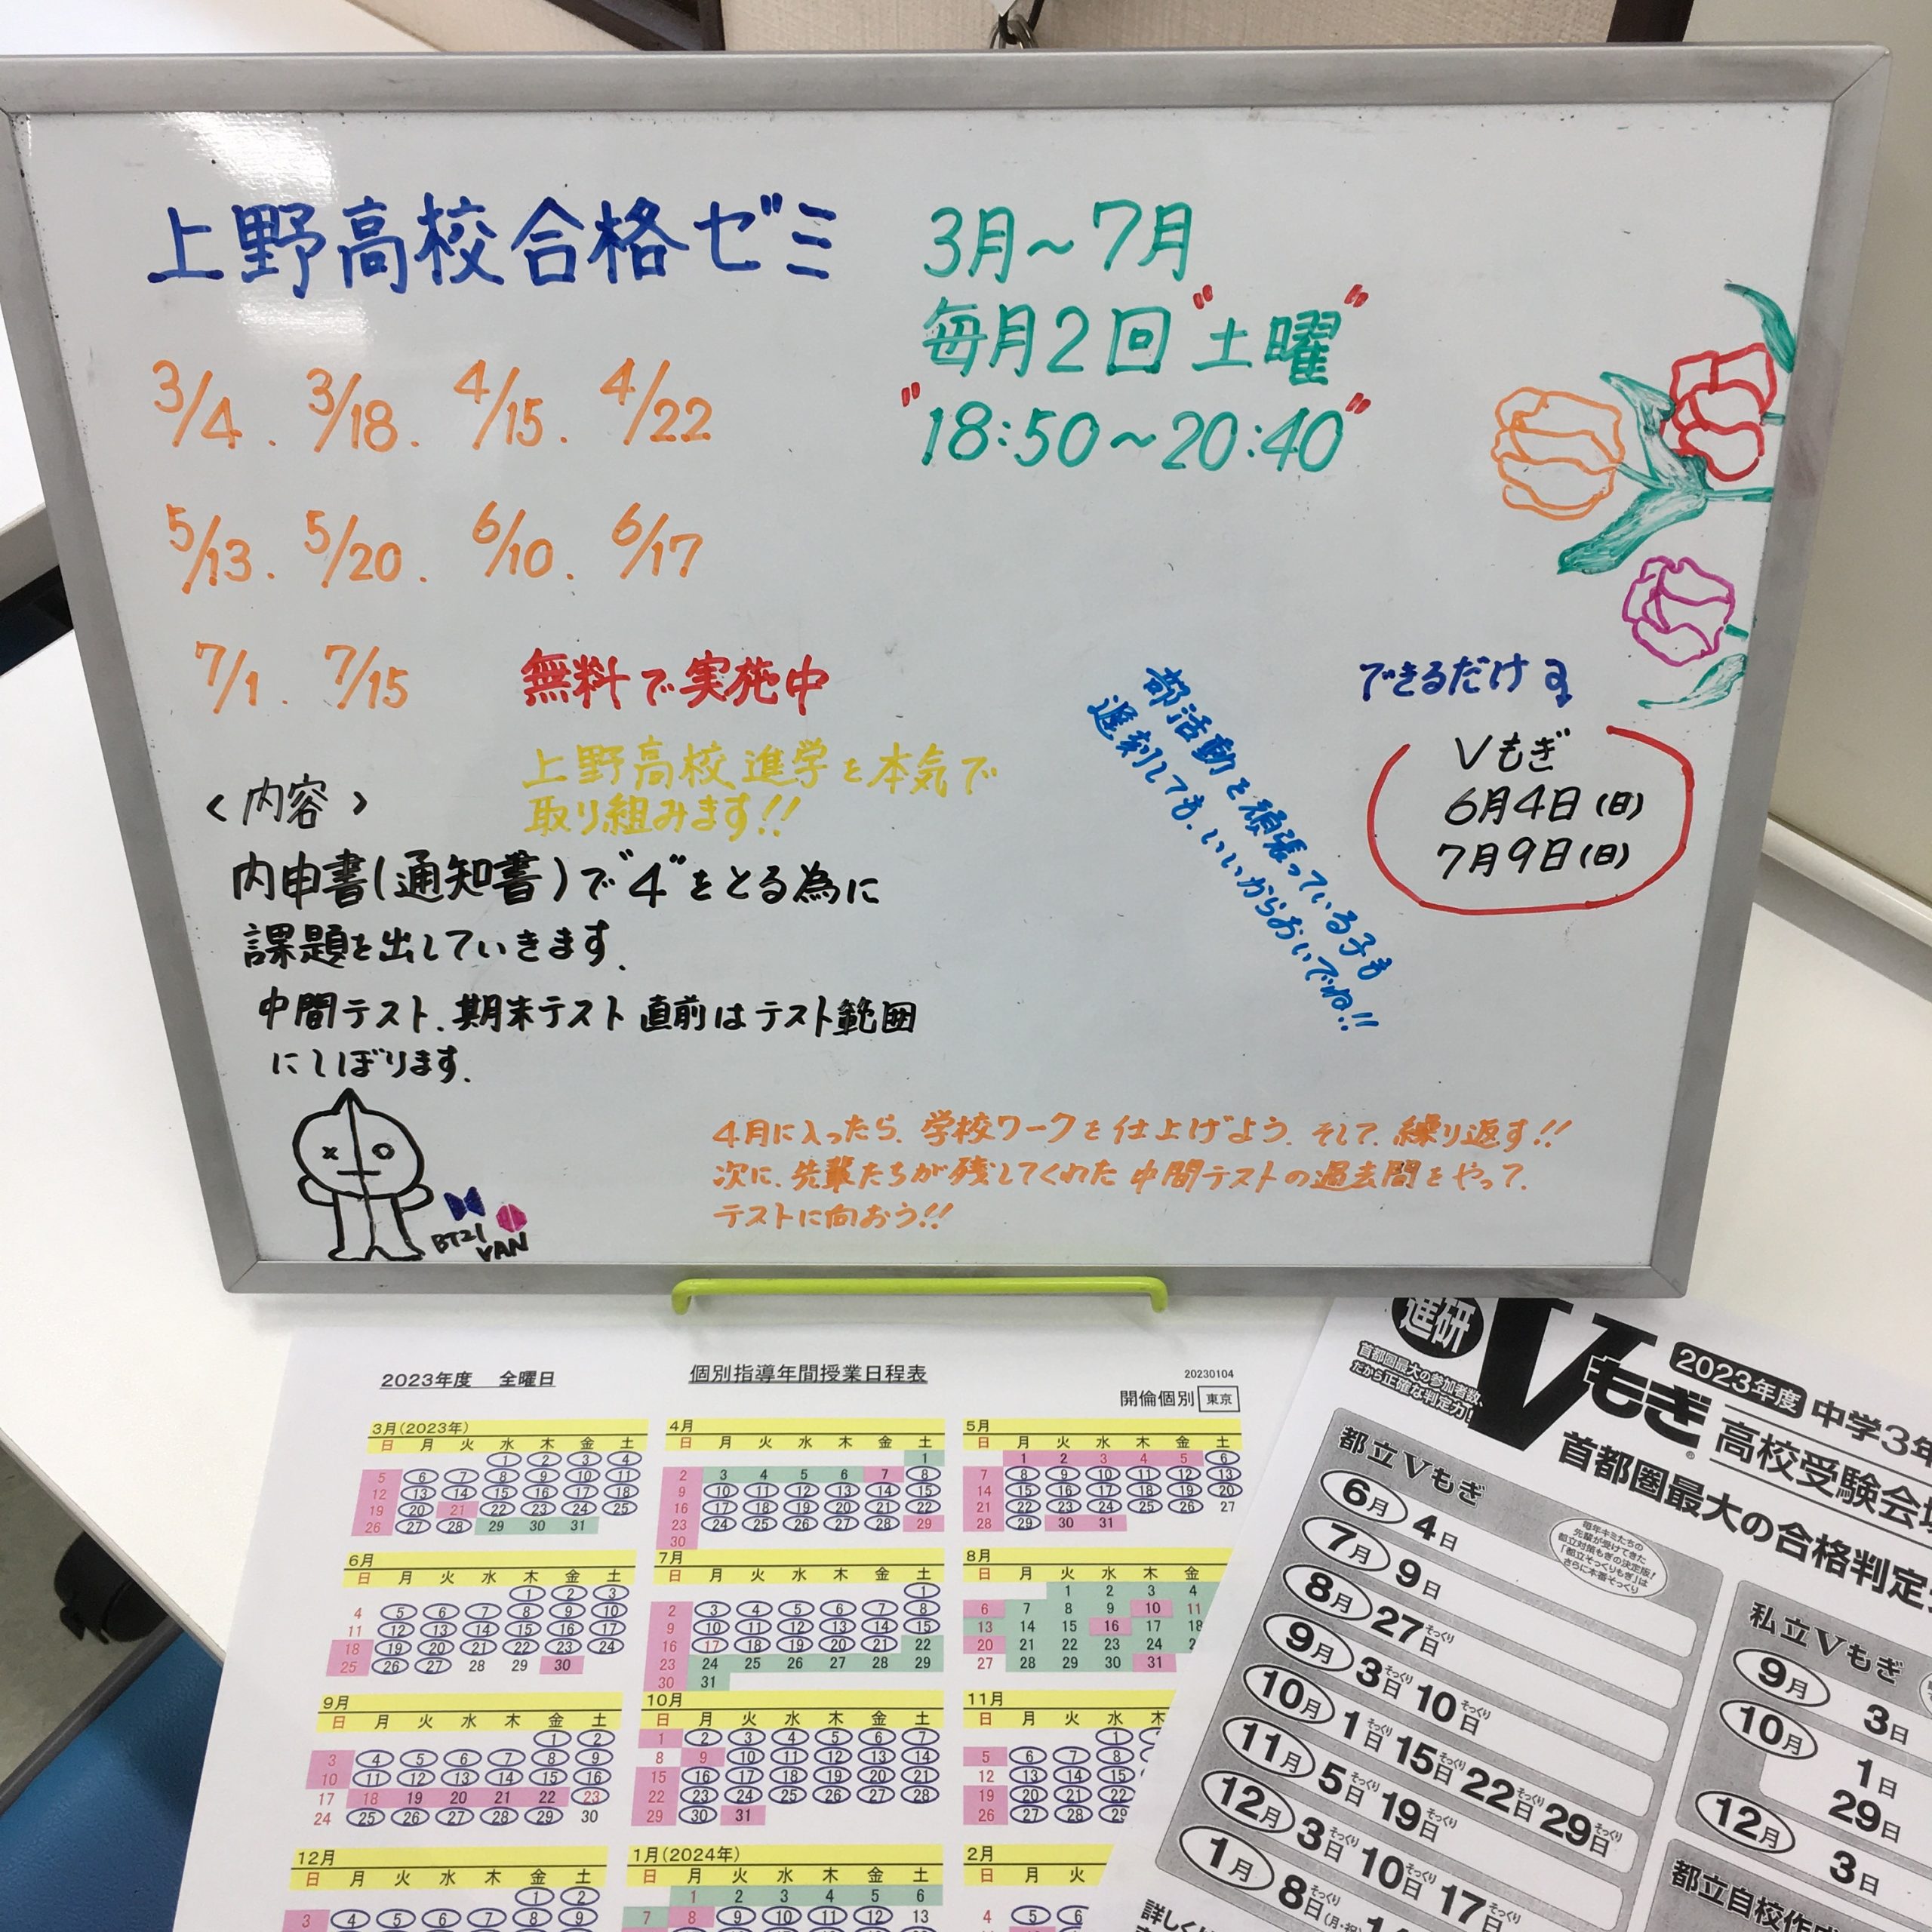 上野高校合格ゼミ
3月〜7月
毎月2回"土曜"
"18:50〜20:40"
3/4. 3/18. 4/15. 4/22
5/13. 5/20. 6/10. 6/17
7/1. 7/15
無料で実施中
上野高校進学を本気で
取り組みます!!
<内容>
内申書(通知書)で"4"をとる為に
課題を出していきます.
中間テスト.期末テスト直前はテスト範囲
にしぼります.
部活動を頑張っている子も
遅刻しても、いいからおいでね!!
できるだけ
Vもぎ
6月4日(日)
7月9日(日)
4月に入ったら、学校ワークを仕上げよう.そして、繰り返す!!
次に、先輩たちが残してくれた中間テストの過去問をやって、
テストに向おう!!
BT21
VAN
2023年度 金曜日
個別指導年間授業日程表
20230104
開倫個別 東京
3月(2023年)
日 月 火 水 木 金 土
1 2 3 4
5 6 7 8 9 10 11
12 13 14 15 16 17 18
19 20 21 22 23 24 25
26 27 28 29 30 31
4月
日 月 火 水 木 金 土
1
2 3 4 5 6 7 8
9 10 11 12 13 14 15
16 17 18 19 20 21 22
23 24 25 26 27 28 29
30
5月
日 月 火 水 木 金 土
1 2 3 4 5 6
7 8 9 10 11 12 13
14 15 16 17 18 19 20
21 22 23 24 25 26 27
28 29 30 31
6月
日 月 火 水 木 金 土
1 2 3
4 5 6 7 8 9 10
11 12 13 14 15 16 17
18 19 20 21 22 23 24
25 26 27 28 29 30
7月
日 月 火 水 木 金 土
1
2 3 4 5 6 7 8
9 10 11 12 13 14 15
16 17 18 19 20 21 22
23 24 25 26 27 28 29
30 31
8月
日 月 火 水 木 金
1 2 3 4
6 7 8 9 10 11
13 14 15 16 17 18
20 21 22 23 24
27 28 29 30 31
9月
日 月 火 水 木 金 土
1 2
3 4 5 6 7 8 9
10 11 12 13 14 15 16
17 18 19 20 21 22 23
24 25 26 27 28 29 30
10月
日 月 火 水 木 金 土
1 2 3 4 5 6 7
8 9 10 11 12 13 14
15 16 17 18 19 20 21
22 23 24 25 26 27 28
29 30 31
11月
日 月 火 水 木
1
5 6 7 8
12 13 14 15
19 20 21 22
26 27 28 29
12月
日 月 火 水 木 金 土
1 2
3 4 5 6 7 8 9
1月(2024年)
日 月 火 水 木 金 土
1 2 3 4 5 6
7 8 9 10 11 12 13
2月
日 月 火
4 5 6
進研
Vもぎ
首都圏最大の参加者数、
だから正確な判定力!
2023年度 中学3年
高校受験会場
首都圏最大の合格判定
都立Vもぎ
毎年キミたちの
先輩が受けてきた
都立対策もぎの決定版!
「都立そっくりもぎ」は
さらに本番そっくり
6月 4日
7月 9日
8月 27日そっくり
9月 3日そっくり 10日そっくり
10月 1日 15日そっくり 22日そっくり 29日そっくり
11月 5日そっくり 19日そっくり
12月 3日そっくり 10日そっくり 17日そっくり
1月 8日そっくり(月・祝)
私立Vもぎ
9月 3日
10月 1日
29日
12月 3日
都立自校作
詳しく